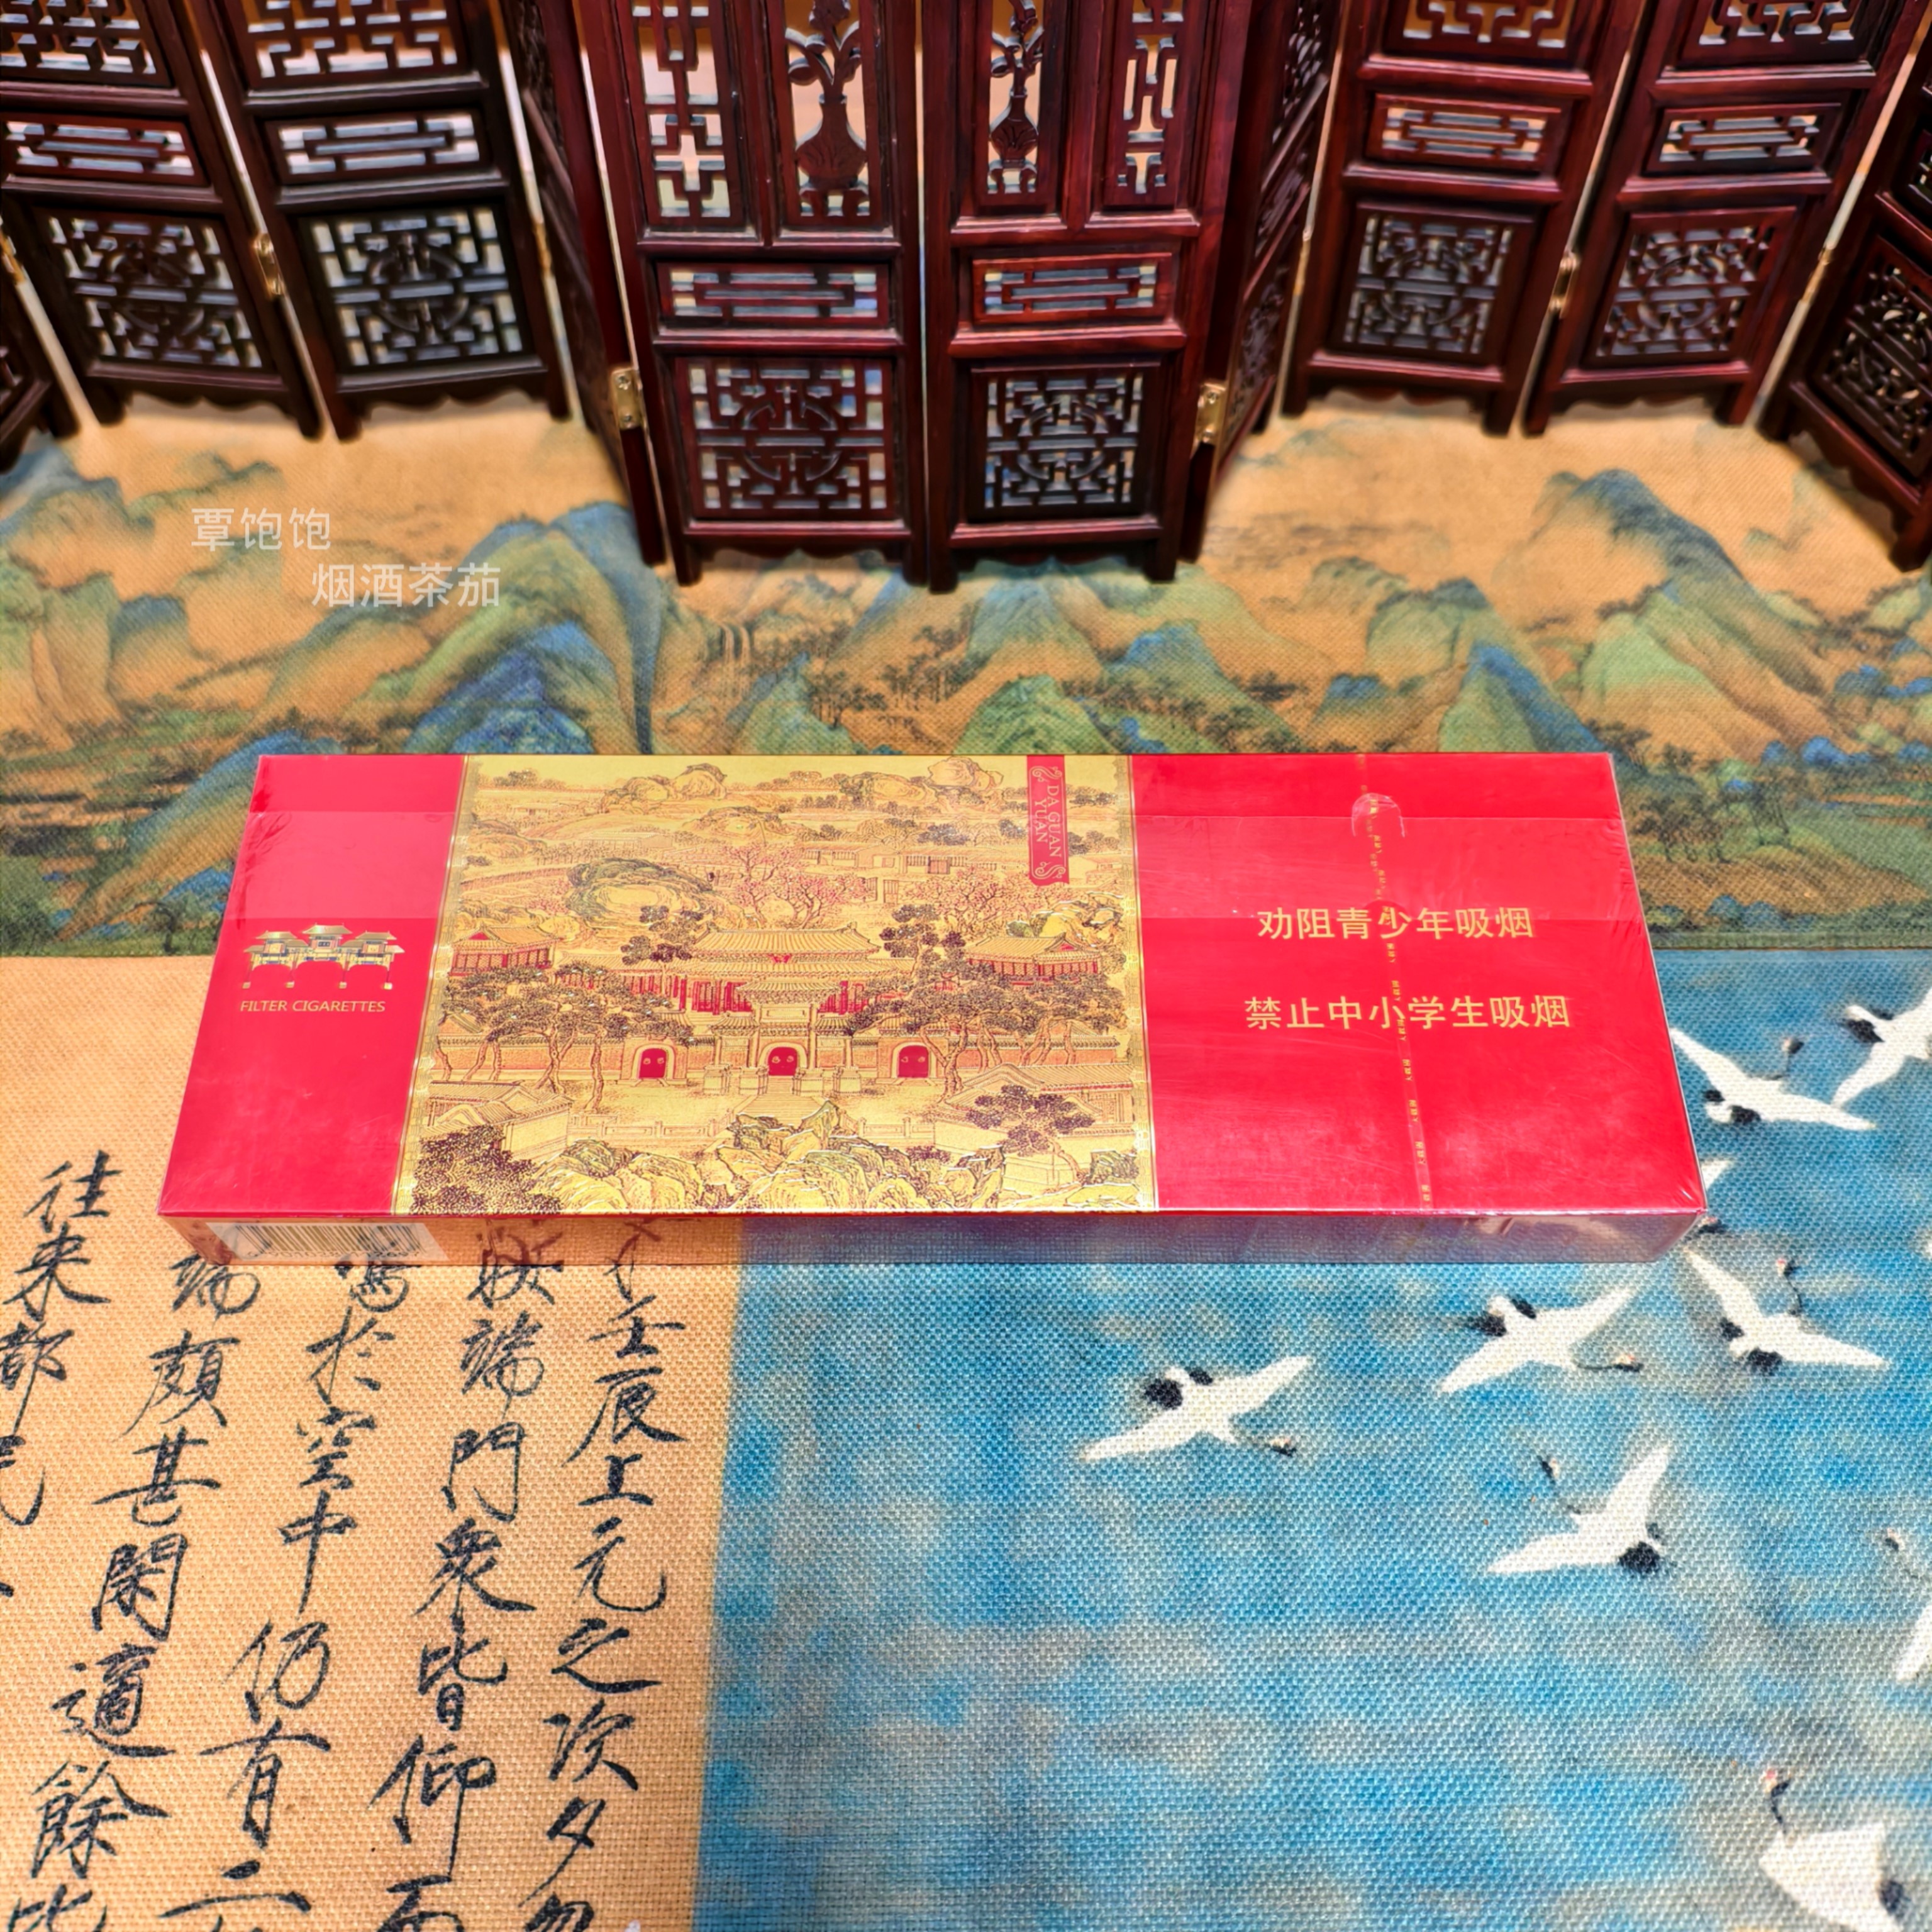 覃饱饱
烟酒茶茄
DA GUAN
YUAN
FILTER CIGARETTES
劝阻青少年吸烟
禁止中小学生吸烟
壬辰上元之次夕
端門衆皆仰而
於空中仍有二
端頗甚閑適餘
往来都